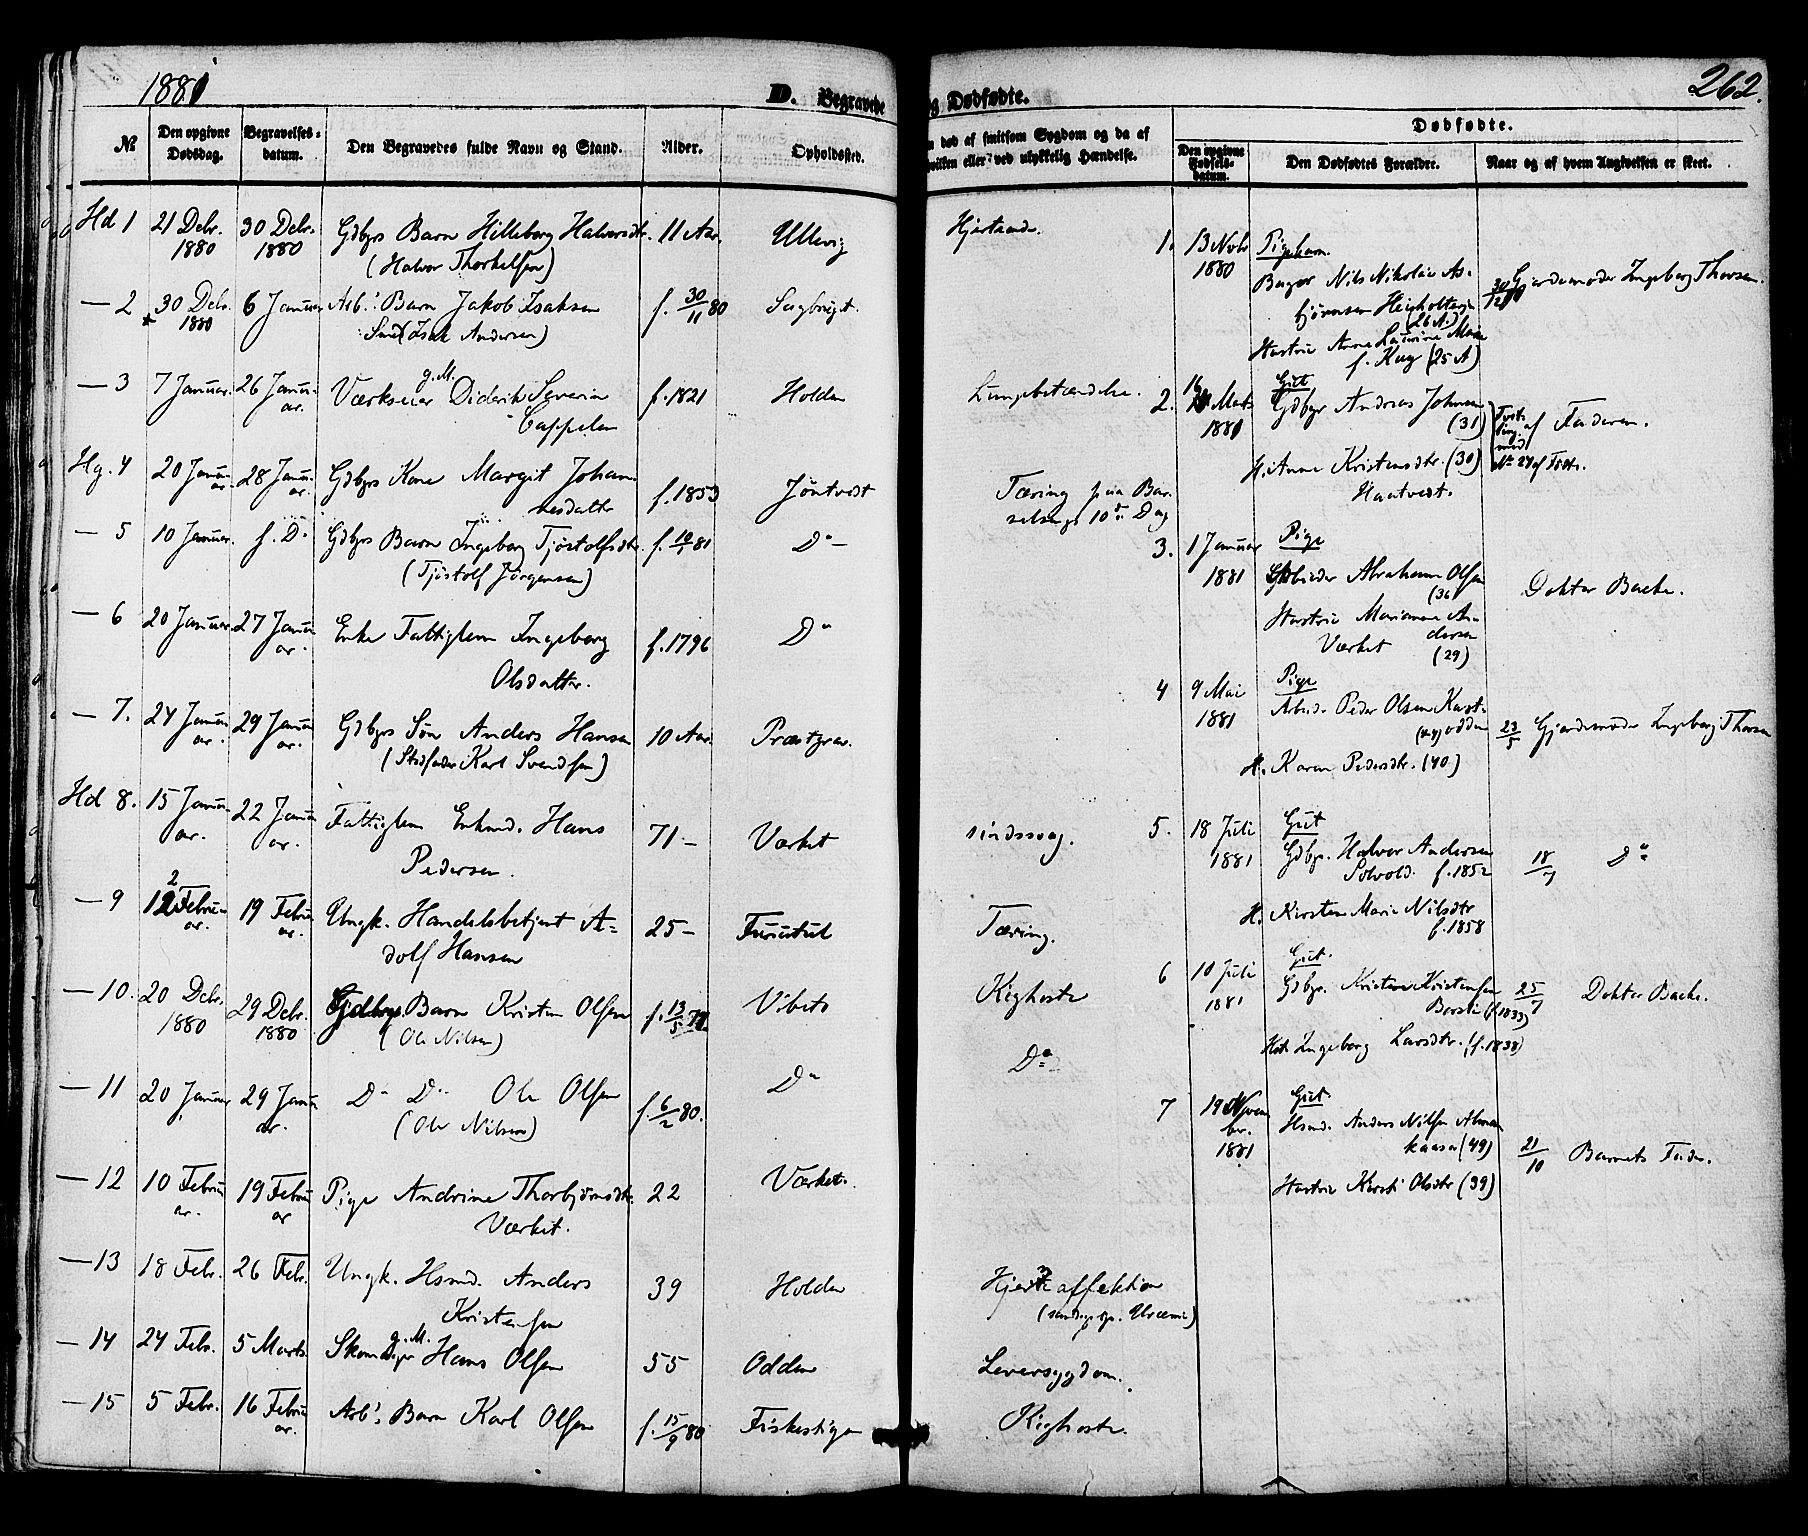 1881
D. Begravede og Dødfødte.
262.
№
Den opgivne Dødsdag.
Begravelses-datum.
Den Begravedes fulde Navn og Stand.
Alder.
Opholdssted.
død af smitsom Sygdom og da af
hvilken eller ved ulykkelig Hændelse.
Dødfødte.
Den opgivne Fødsels-datum.
Den Dødfødtes Forældre.
Naar og af hvem Angivelsen er skeet.
Hd 1 21 Debr. 1880 30 Debr. 1880 Gdbgrs Barn Hilleborg Halvorsdtr. 11 Aar. Ullevig
(Halvor Thorkelsen)
— 2 30 Debr. 1880 6 Januar Arb! Barn Jakob Isaksen f. 30/11 80 Sagbruget.
(Isak Andersen)
— 3 7 Januar. 26 Januar. Værkseier g.M. Diderik Severin f. 1821 Holden Lungebetændelse.
Cappelen
Hg. 4 20 Januar. 28 Januar. Gdbgrs Kone Margit Johan- f. 1853 Jøntvedt Tæring paa Bar-
nesdatter selseng 10de Dag
— 5 10 Januar. f. D. Gdbgrs Barn Ingeborg Tjøstolfsdtr. f. 10/1 81 Do —
(Tjøstolf Jørgensen)
— 6 20 Januar 27 Januar. Enke Fattiglem Ingeborg f. 1796 Do
Olsdatter.
— 7. 24 Januar. 29 Januar. Gdbgrs Søn Anders Hansen 10 Aar. Præstgrav.
(Stedfader Karl Svendsen)
Hd 8. 15 Januar. 22 Januar. Fattiglem Enkmd. Hans 71 — Værket sindssvag.
Pedersen.
— 9 12 Februar. 19 Februar. Ungk. Handelsbetjent A- 25 — Furustul Tæring.
dolf Hansen
— 10. 20 Debr. 1880 29 Debr. 1880 Gdbrgs. Barn Kristen Olsen f. 13/5 77 Vibeto Kighoste
(Ole Nilsen)
— 11 20 Januar 29 Januar. Do Do Ole Olsen f. 6/2 80. Do Do
(Ole Nilsen)
— 12 10 Februar. 19 Februar Pige Andrine Thorbjørnsdtr. 22 Værket.
Værket.
— 13 18 Febr. 26 Febr. Ungk. Hsmd. Anders 39 Holden Hjerteaffektion
Kristensen (sandsygv. Uræmi)
— 14 24 Febr. 5 Marts Skomager g.M. Hans Olsen 55 Odden Leversygdom.
— 15 5 Febr. 16 Februar. Arb!. Barn Karl Olsen f. 15/9 80 Fiskestigen Kighoste.
1. 13 Novbr 1880 Pigebarn
Bager Nils Nikolai As-
bjørnsen
(26 A.)
Hustru Anne Laurine Marie
f. Krog (25 A)
30/12 80 Gjordemoder Ingeborg Thorsen.
2. 16 Marts 1881 Gut
Gdbgr Andreas Johnsen
(31)
H. Anne Kristensdtr. (30)
Haatvedt.
Tvilling med № 24 af Fødte. af Faderen.
3. 1 Januar 1881 Pige
Abraham Olsen
(36
Hustru Marianne An-
Værket dersen
(29)
Doktor Backe.
4 9 Mai 1881 Pige
Arbeid. Peder Olsen Kast-
(44) odden
H. Karen Pedersdtr. (40)
23/5 Gjordemoder Ingeborg Thorsen
5. 18 Juli 1881 Gut
Gdbgr. Halvor Andersen
Solvold. f. 1852
H. Kirsten Marie Nilsdtr
f. 1858
18/7 Do
6 10 Juli 1881 Gut.
Gdbgr. Kristen Kristensen
(f. 1833)
Ingeborg Larsdtr. (f. 1838)
25/7 Doktor Backe.
7 19 Novem br. 1881 Gut.
Hsmd. Anders Nilsen
kaasa (49)
Hustru Kirsti Olsdtr (39)
21/10 Barnets Fader.